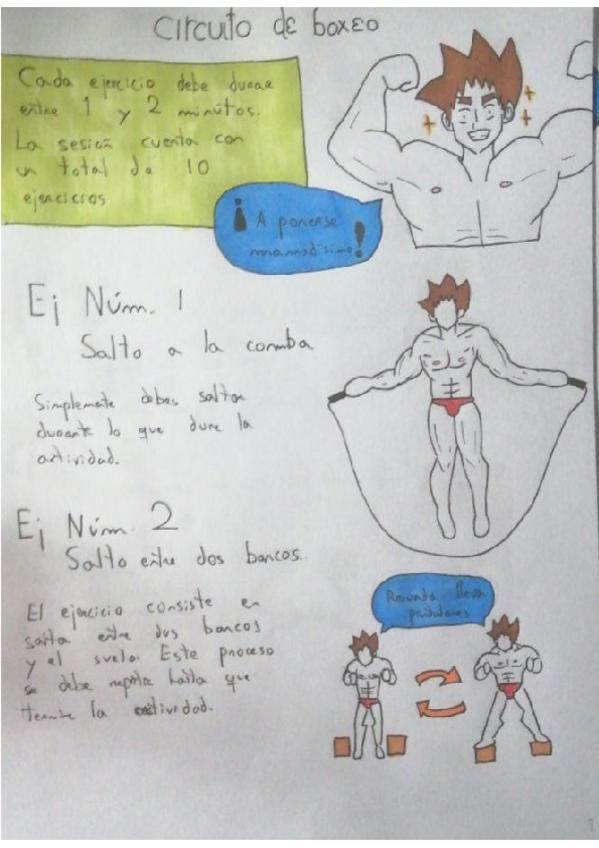 Circuito de boxeo
Cada ejercicio debe durar
entre 1 y 2 minutos.
La sesión cuenta con
un total de 10
ejercicios
¡A ponerse
mamadísimo!
Ej Núm. 1
Salto a la comba
Simplemente debes saltar
durante lo que dure la
actividad.
Ej Núm. 2
Salto entre dos bancos.
El ejercicio consiste en
salta entre dos bancos
y el suelo. Este proceso
se debe repetir hasta que
termine la actividad.
Recuerda llevar
1